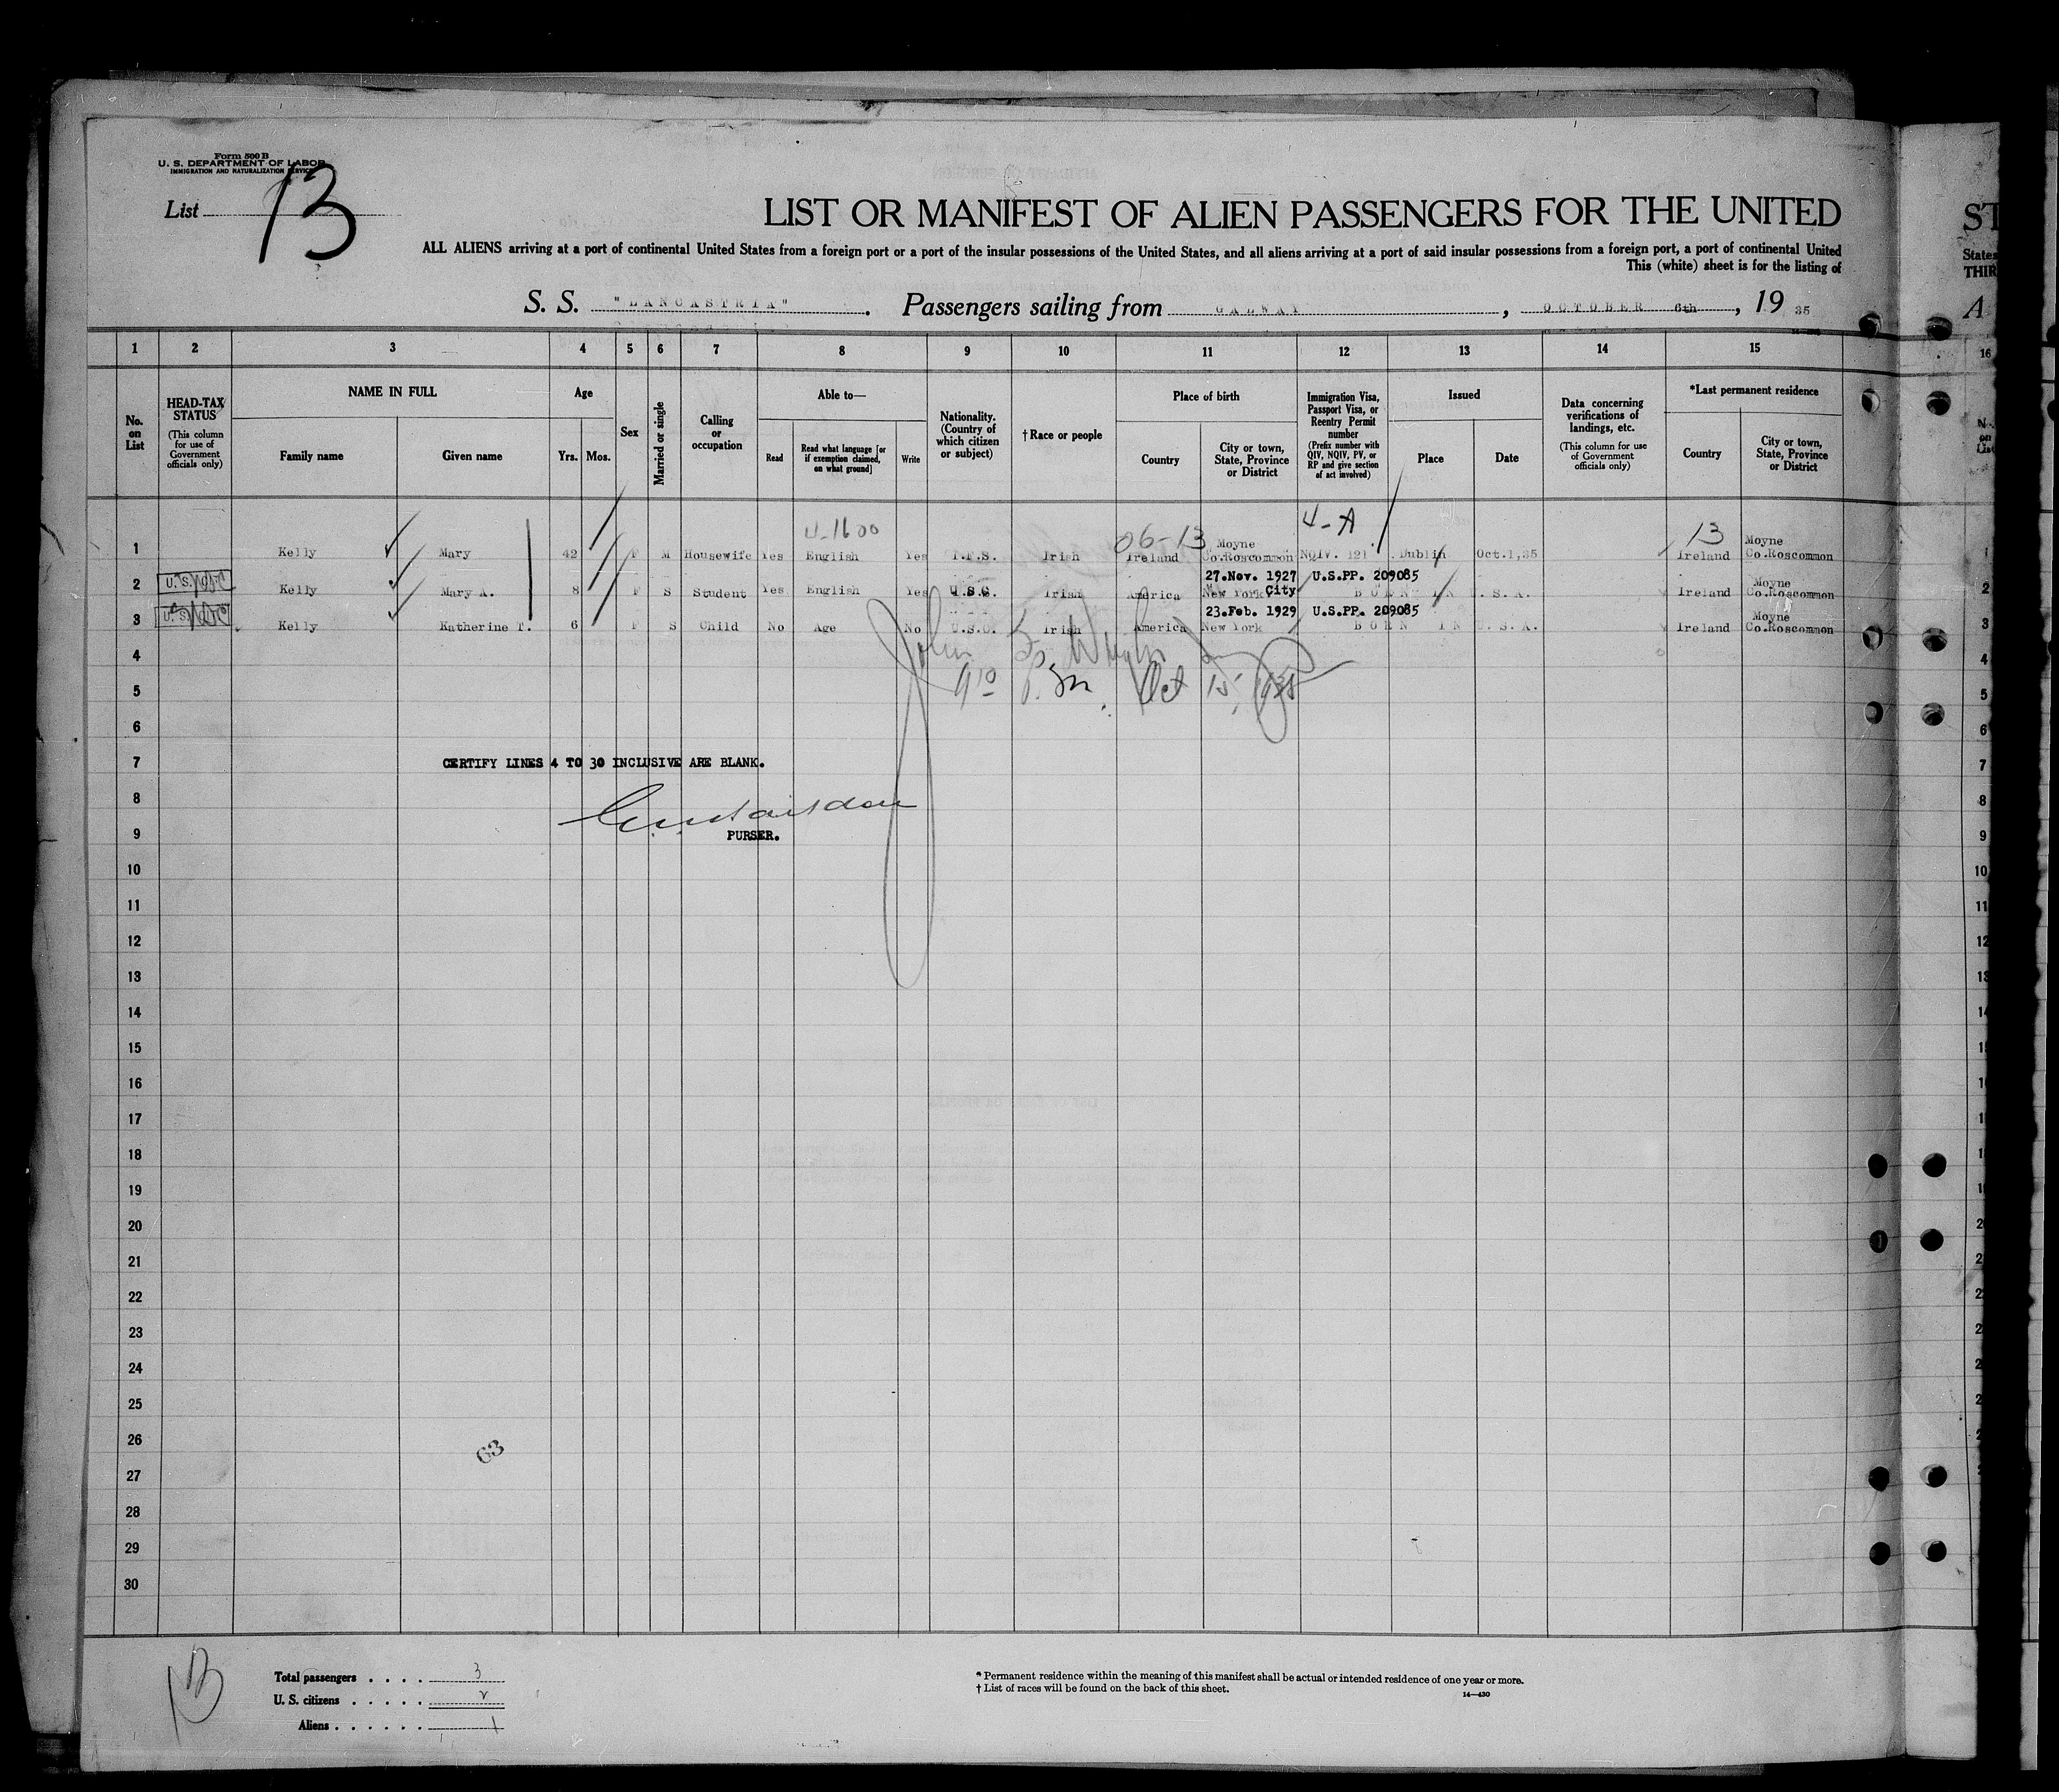 Form 500 B
U. S. DEPARTMENT OF LABOR
IMMIGRATION AND NATURALIZATION SERVICE
List 13
LIST OR MANIFEST OF ALIEN PASSENGERS FOR THE UNITED
ST
ALL ALIENS arriving at a port of continental United States from a foreign port or a port of the insular possessions of the United States, and all aliens arriving at a port of said insular possessions from a foreign port, a port of continental United
States
This (white) sheet is for the listing of
THIR
S. S. "LANCASTRIA". Passengers sailing from GALWAY, OCTOBER 6th, 19 35
A
1 2 3 4 5 6 7 8 9 10 11 12 13 14 15 16
No. on List
HEAD-TAX STATUS
(This column for use of Government officials only)
NAME IN FULL
Family name
Given name
Age
Yrs. Mos.
Sex
Married or single
Calling or occupation
Able to—
Read
Read what language [or if exemption claimed, on what ground]
Write
Nationality. (Country of which citizen or subject)
† Race or people
Place of birth
Country
City or town, State, Province or District
Immigration Visa, Passport Visa, or Reentry Permit number
(Prefix number with QIV, NQIV, PV, or RP and give section of act involved)
Issued
Place
Date
Data concerning verifications of landings, etc.
(This column for use of Government officials only)
*Last permanent residence
Country
City or town, State, Province or District
4-1600 06-13 4-A 13
Moyne Moyne
1 Kelly Mary 42 F M Housewife Yes English Yes I.F.S. Irish Ireland Co.Roscommon NQIV. 121 Dublin Oct.1,35 Ireland Co.Roscommon 1
27.Nov. 1927 U.S.PP. 209085
Moyne
2 Kelly Mary A. 8 F S Student Yes English Yes U.S.C. Irish America New York City BORN IN U.S.A. Ireland Co.Roscommon 2
23.Feb. 1929 U.S.PP. 209085
Moyne
3 Kelly Katherine T. 6 F S Child No Age No U.S.C. Irish America New York BORN IN U.S.A. Ireland Co.Roscommon 3
4 4
John
9 10 P.m. Oct 15, 1935
5 5
6 6
7 CERTIFY LINES 4 TO 30 INCLUSIVE ARE BLANK. 7
8 8
9 PURSER. 9
10 10
11 11
12 12
13 13
14
15
16
17
18
19
20
21
22
23
24
25
26
63
27
28
29
30
13
Total passengers . . . . 3
U. S. citizens . . . . . 2
Aliens . . . . . . 1
* Permanent residence within the meaning of this manifest shall be actual or intended residence of one year or more.
† List of races will be found on the back of this sheet.
14—430